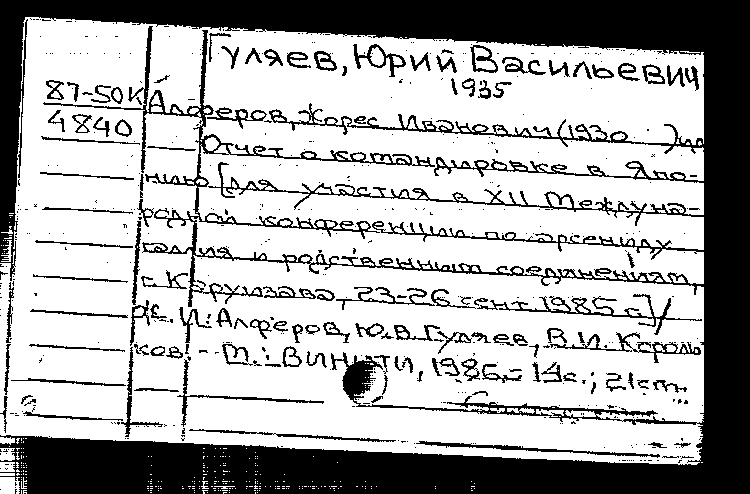 Гуляев, Юрий Васильевич
1935
87-50К
4840
Алферов, Жорес Иванович (1930 ) и др
Отчет о командировке в Япо-
нию [для участия в XII Междуна-
родной конференции по арсениду
галлия и родственным соединениям,
г. Каруизава, 23-26 сент 1985 г.] /
Ж. И. Алферов, Ю.В. Гуляев, В.И. Король
ков. - М.: ВИНИТИ, 1986. - 14с.; 21см.
9